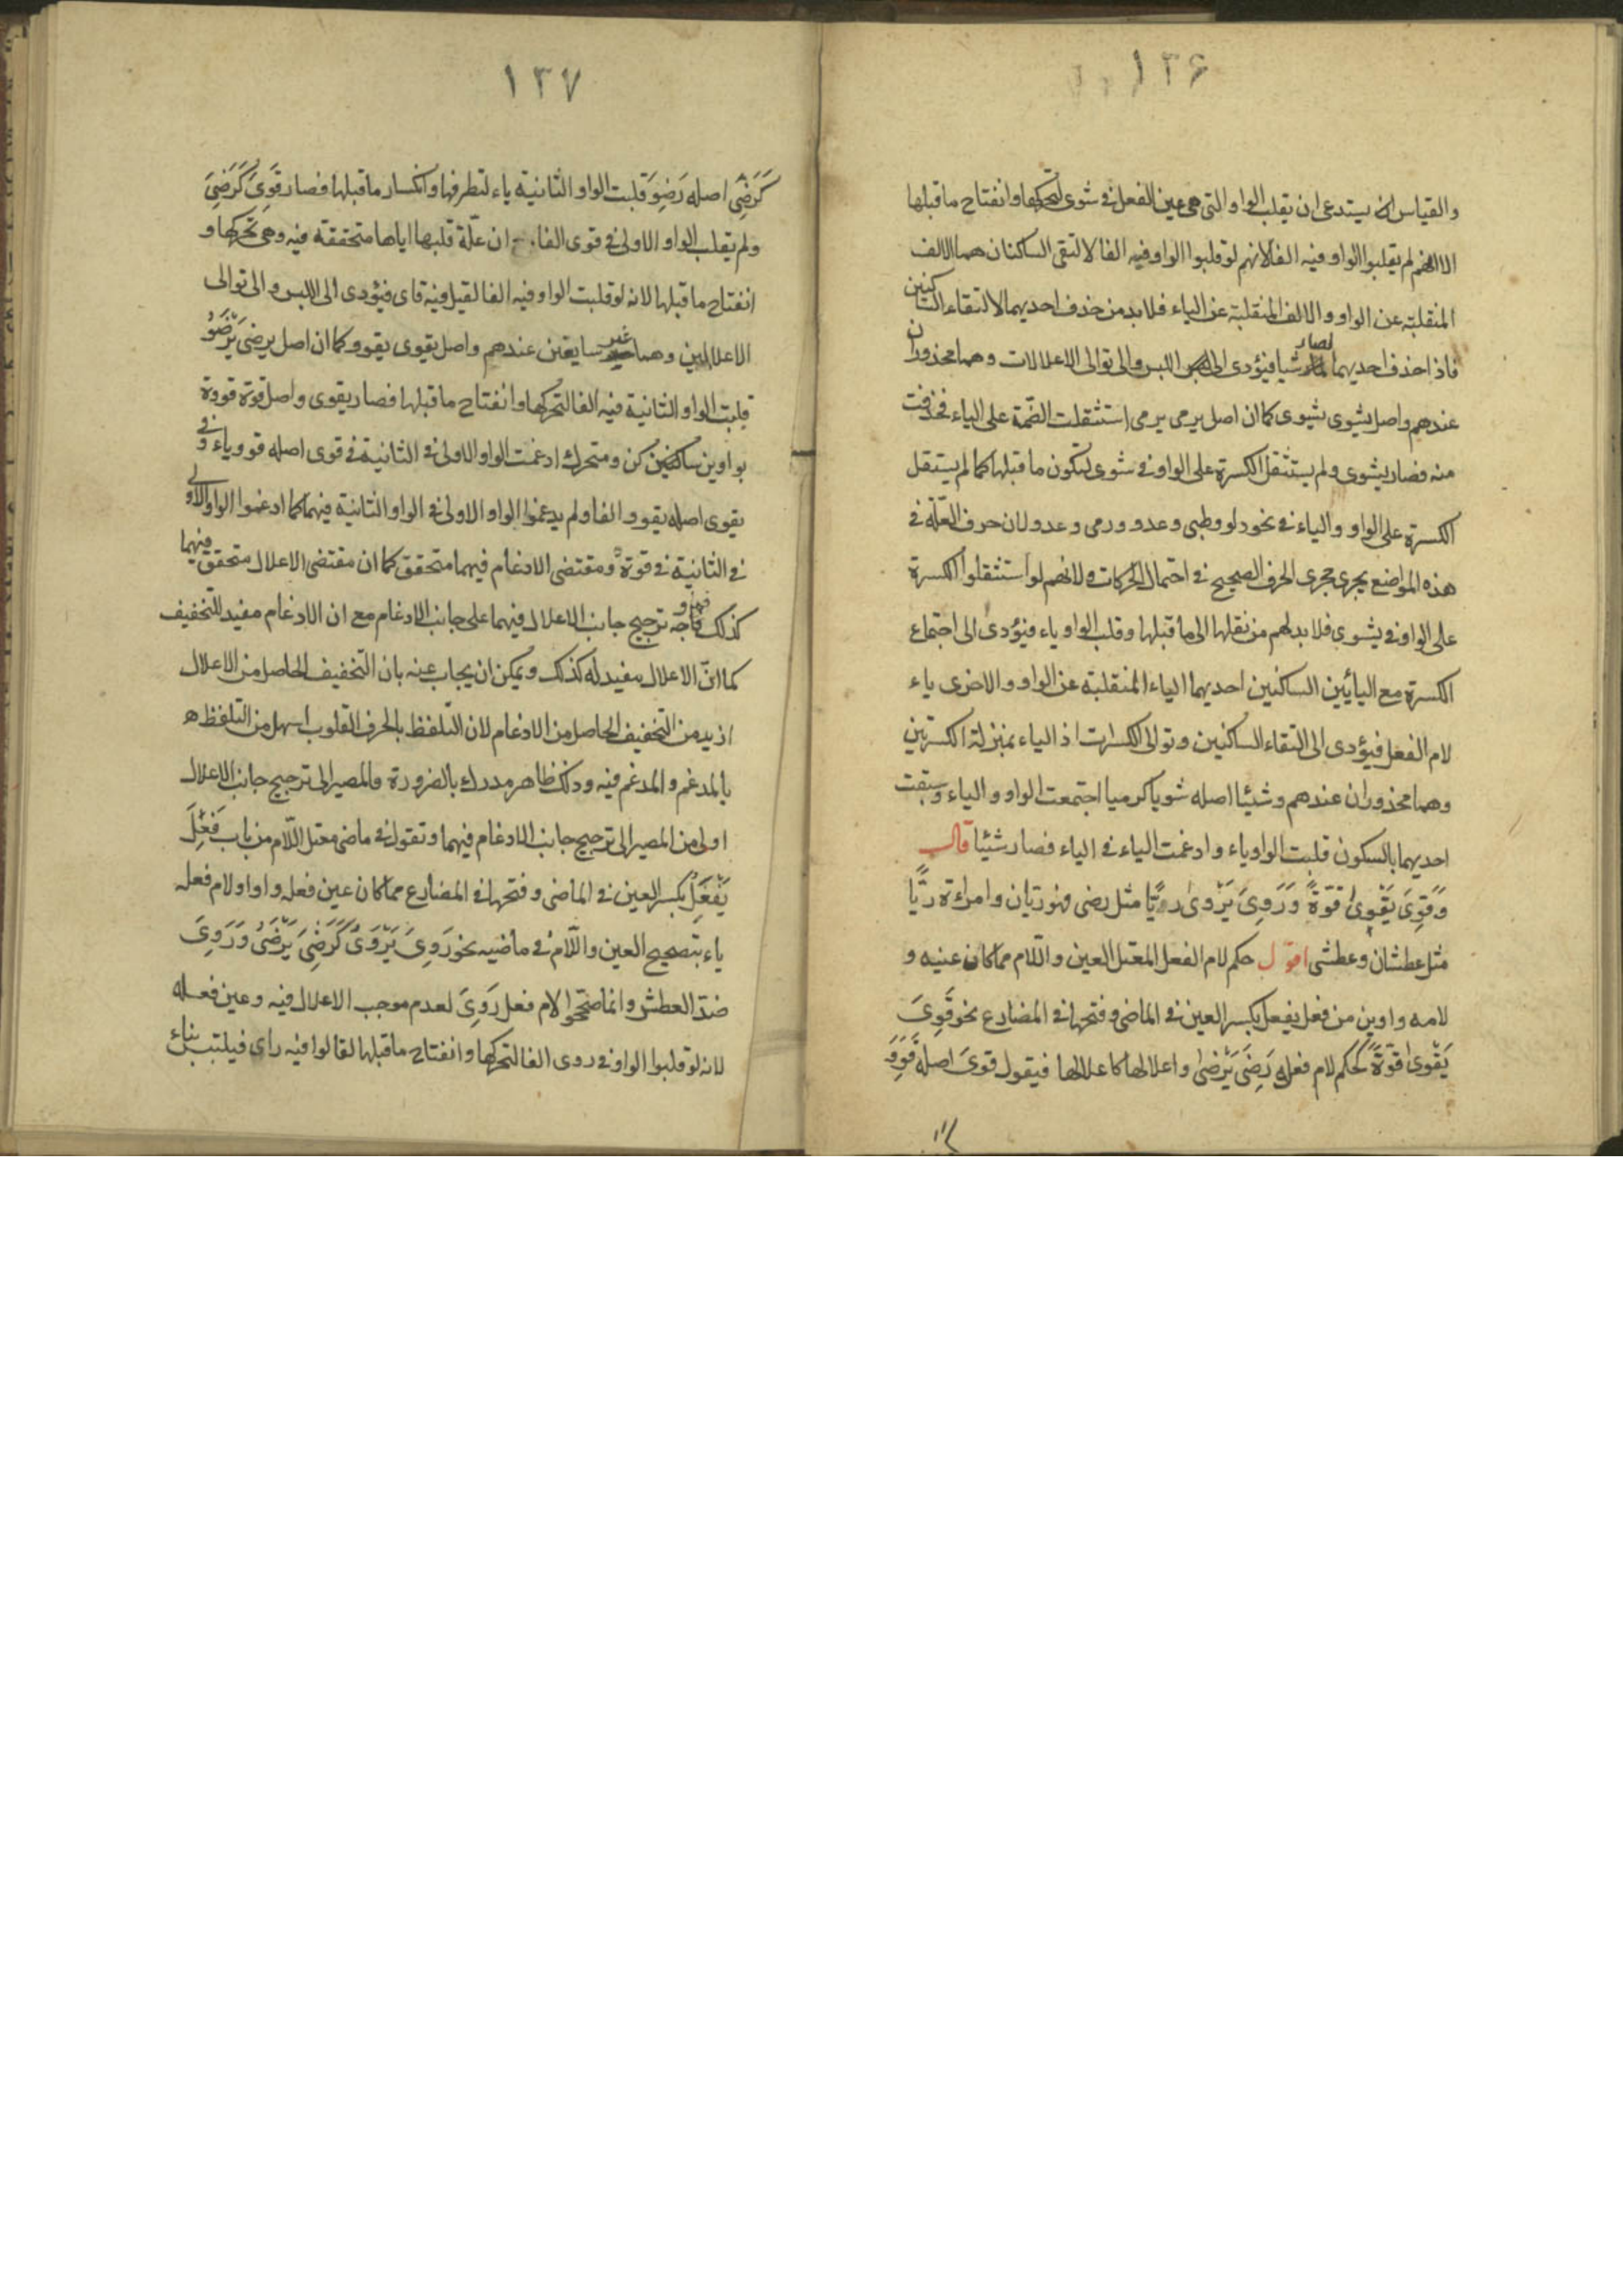 ١٣۶
والقياس ان يستدعى ان يقلب الواو التى هى عين الفعل فى شوى لتحركها وانفتاح ماقبلها
الا انهم لم يقلبوا الواو فيه الفا لانهم لوقلبوا الواو فيه الفا لالتقى الساكنان هما الالف
المنقلبة عن الواو والالف المنقلبة عن الياء فلابد من حذف احديهما لالتقاء الساكنين
فاذا حذف احديهما لصار شيا فيؤدى الى اللبس والى توالى الاعلالات وهما محذوران
عندهم واصل يشوى يشوى كما ان اصل يرمى يرمى استثقلت الضّمة على الياء فحذفت
منه فصار يشوى ولم يستثقل الكسرة على الواو فى شوى لسكون ماقبلها كما لم يستثقل
الكسرة على الواو والياء فى نحو دلو وظبى وعدو ورمى وعدو لان حرف العلّة فى
هذه المواضع يجرى مجرى الحرف الصحيح فى احتمال الحركات ولانهم لو استثقلوا الكسرة
على الواو فى يشوى فلابد لهم من نقلها الى ماقبلها وقلب الواو ياء فيؤدى الى اجتماع
الكسرة مع اليائين الساكنين احديهما الياء المنقلبة عن الواو والاخرى ياء
لام الفعل فيؤدى الى التقاء الساكنين وتوالى الكسرات اذ الياء بمنزلة الكسرتين
وهما محذوران عندهم وشيّا اصله شويا كرميا اجتمعت الواو والياء وسبقت
احديهما بالسكون قلبت الواو ياء وادغمت الياء فى الياء فصار شيّا قال
وَقَوِىَ يَقْوىٰ قوّةً وَرَوِىَ يَرْوىٰ ريًّا مثل رضى فهو ريان وامراءة ريًّا
مثل عطشان وعطشى اقول حكم لام الفعل المعتل العين واللّام مما كان عينه و
لامه واوين من فعل يفعل بكسر العين فى الماضى وفتحها فى المضارع نحو قَوِىَ
يَقْوىٰ قوّةً كحكم لام فعل رَضِىَ يَرْضىٰ واعلالها كاعلالها فيقول قوىَ اصله قَوِوَ
١٣٧
كَرَضِىَ اصله رَضِوَ قلبت الواو الثانية ياء لتطرفها وانكسار ماقبلها فصار قَوِىَ كَرَضِىَ
ولم يقلب الواو الاولى فى قوى الفا ان علّة قلبها اياها متحققة فيه وهى تحركها و
انفتاح ماقبلها لانه لوقلبت الواو فيه الفا لقيل فيه قاى فيؤدى الى اللبس والى توالى
الاعلالين وهما غير سايغين عندهم واصل يقوى يقوو كما ان اصل يرضى يَرْضَوُ
قلبت الواو الثانية فيه الفا لتحركها وانفتاح ماقبلها فصار يقوى واصل قوة قووة
بواوين ساكن ومتحرك ادغمت الواو الاولى فى الثانية فى قوى اصله قوو ياء وفى
يقوى اصله يقوو الفا ولم يدغموا الواو الاولى فى الواو الثانية فيهما كما ادغموا الواو الاولى
فى الثانية فى قوة ومقتضى الادغام فيهما متحقق كما ان مقتضى الاعلال متحقق فيهما
كذلك ترجيح جانب الاعلال فيهما على جانب الادغام مع ان الادغام مفيد للتخفيف
كما انّ الاعلال مفيد له كذلك ويمكن ان يجاب عنه بان التخفيف الحاصل من الاعلال
ازيد من التخفيف الحاصل من الادغام لان التّلفظ بالحرف القلوب اسهل من التلفظ
بالمدغم والمدغم فيه وذلك ظاهر مدرك بالضرورة والمصير الى ترجيح جانب الاعلال
اولى من المصير الى ترجيح جانب الادغام فيهما وتقول فى ماضى معتل اللّام من باب فَعِلَ
يَفْعَلُ بكسر العين فى الماضى وفتحها فى المضارع مما كان عين فعله واوا ولام فعله
ياء بتصحيح العين واللّام فى ماضيه نحو رَوِىَ يَرْوَىُ كَرَضِىَ يَرْضَىُ وَرَوِىَ
ضدّ العطش وانما صححوا لام فعل رَوِىَ لعدم موجب الاعلال فيه وعين فعله
لانه لوقلبوا الواو فى روى الفا لتحركها وانفتاح ماقبلها لقالوا فيه راى فيلتبس بناء